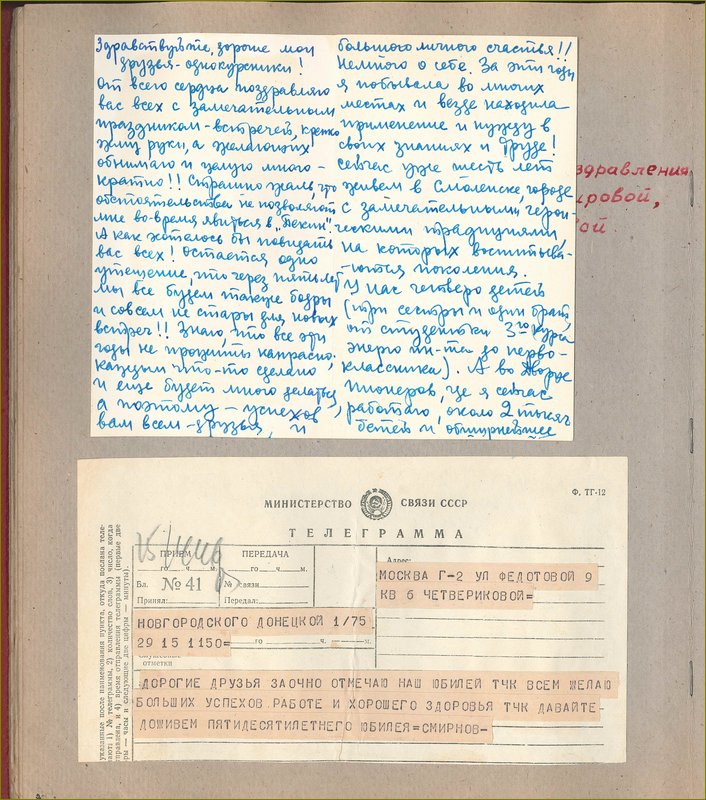 Здравствуйте, дорогие мои
друзья-однокурсники!
От всего сердца поздравляю
вас всех с замечательным
праздником-встречей, крепко
жму руки, а желающих
обнимаю и целую много-
кратно!! Страшно жаль, что
обстоятельства не позволяют
мне во-время явиться в „Пекин".
А как хотелось бы повидать
вас всех! Остается одно
утешение, что через пять лет
мы все будем такие бодры
и совсем не стары для новых
встреч!! Знаю, что все эти
годы не прожиты напрасно,
каждым что-то сделано
и еще будет много делаться,
а поэтому - успехов
вам всем-друзья, и
большого личного счастья!!
Немного о себе. За эти годы
я побывала во многих
местах и везде находила
применение и нужду в
своих знаниях и труде!
Сейчас уже шесть лет
живем в Смоленске, городе
с замечательными герои-
ческими традициями,
на которых воспитыва-
-ются поколения.
У нас четверо детей
(три сестры и один брат,
от студентки 3го курса
энерго ин-та до перво-
классника). А во Дворце
Пионеров, где я сейчас
работаю, около 2 тысяч
детей и обширнейшее
здравления
ировой,
ой
Ф. ТГ-12
МИНИСТЕРСТВО СВЯЗИ СССР
ТЕЛЕГРАММА
ПРИЕМ ПЕРЕДАЧА
го ч. м. го ч. м.
Бл. №41 № связи
Принял: Передал:
Адрес:
МОСКВА Г-2 УЛ ФЕДОТОВОЙ 9
КВ 6 ЧЕТВЕРИКОВОЙ=
НОВГОРОДСКОГО ДОНЕЦКОЙ 1/75
29 15 1150= го ч. м.
Служебные
отметки
ДОРОГИЕ ДРУЗЬЯ ЗАОЧНО ОТМЕЧАЮ НАШ ЮБИЛЕЙ ТЧК ВСЕМ ЖЕЛАЮ
БОЛЬШИХ УСПЕХОВ РАБОТЕ И ХОРОШЕГО ЗДОРОВЬЯ ТЧК ДАВАЙТЕ-
ДОЖИВЕМ ПЯТИДЕСЯТИЛЕТНЕГО ЮБИЛЕЯ=СМИРНОВ-
указанные после наименования пункта, откуда послана теле-
1) № телеграммы, 2) количество слов, 3) число, когда
и 4) время отправления телеграммы (первые две
— часы и следующие две цифры — минуты).